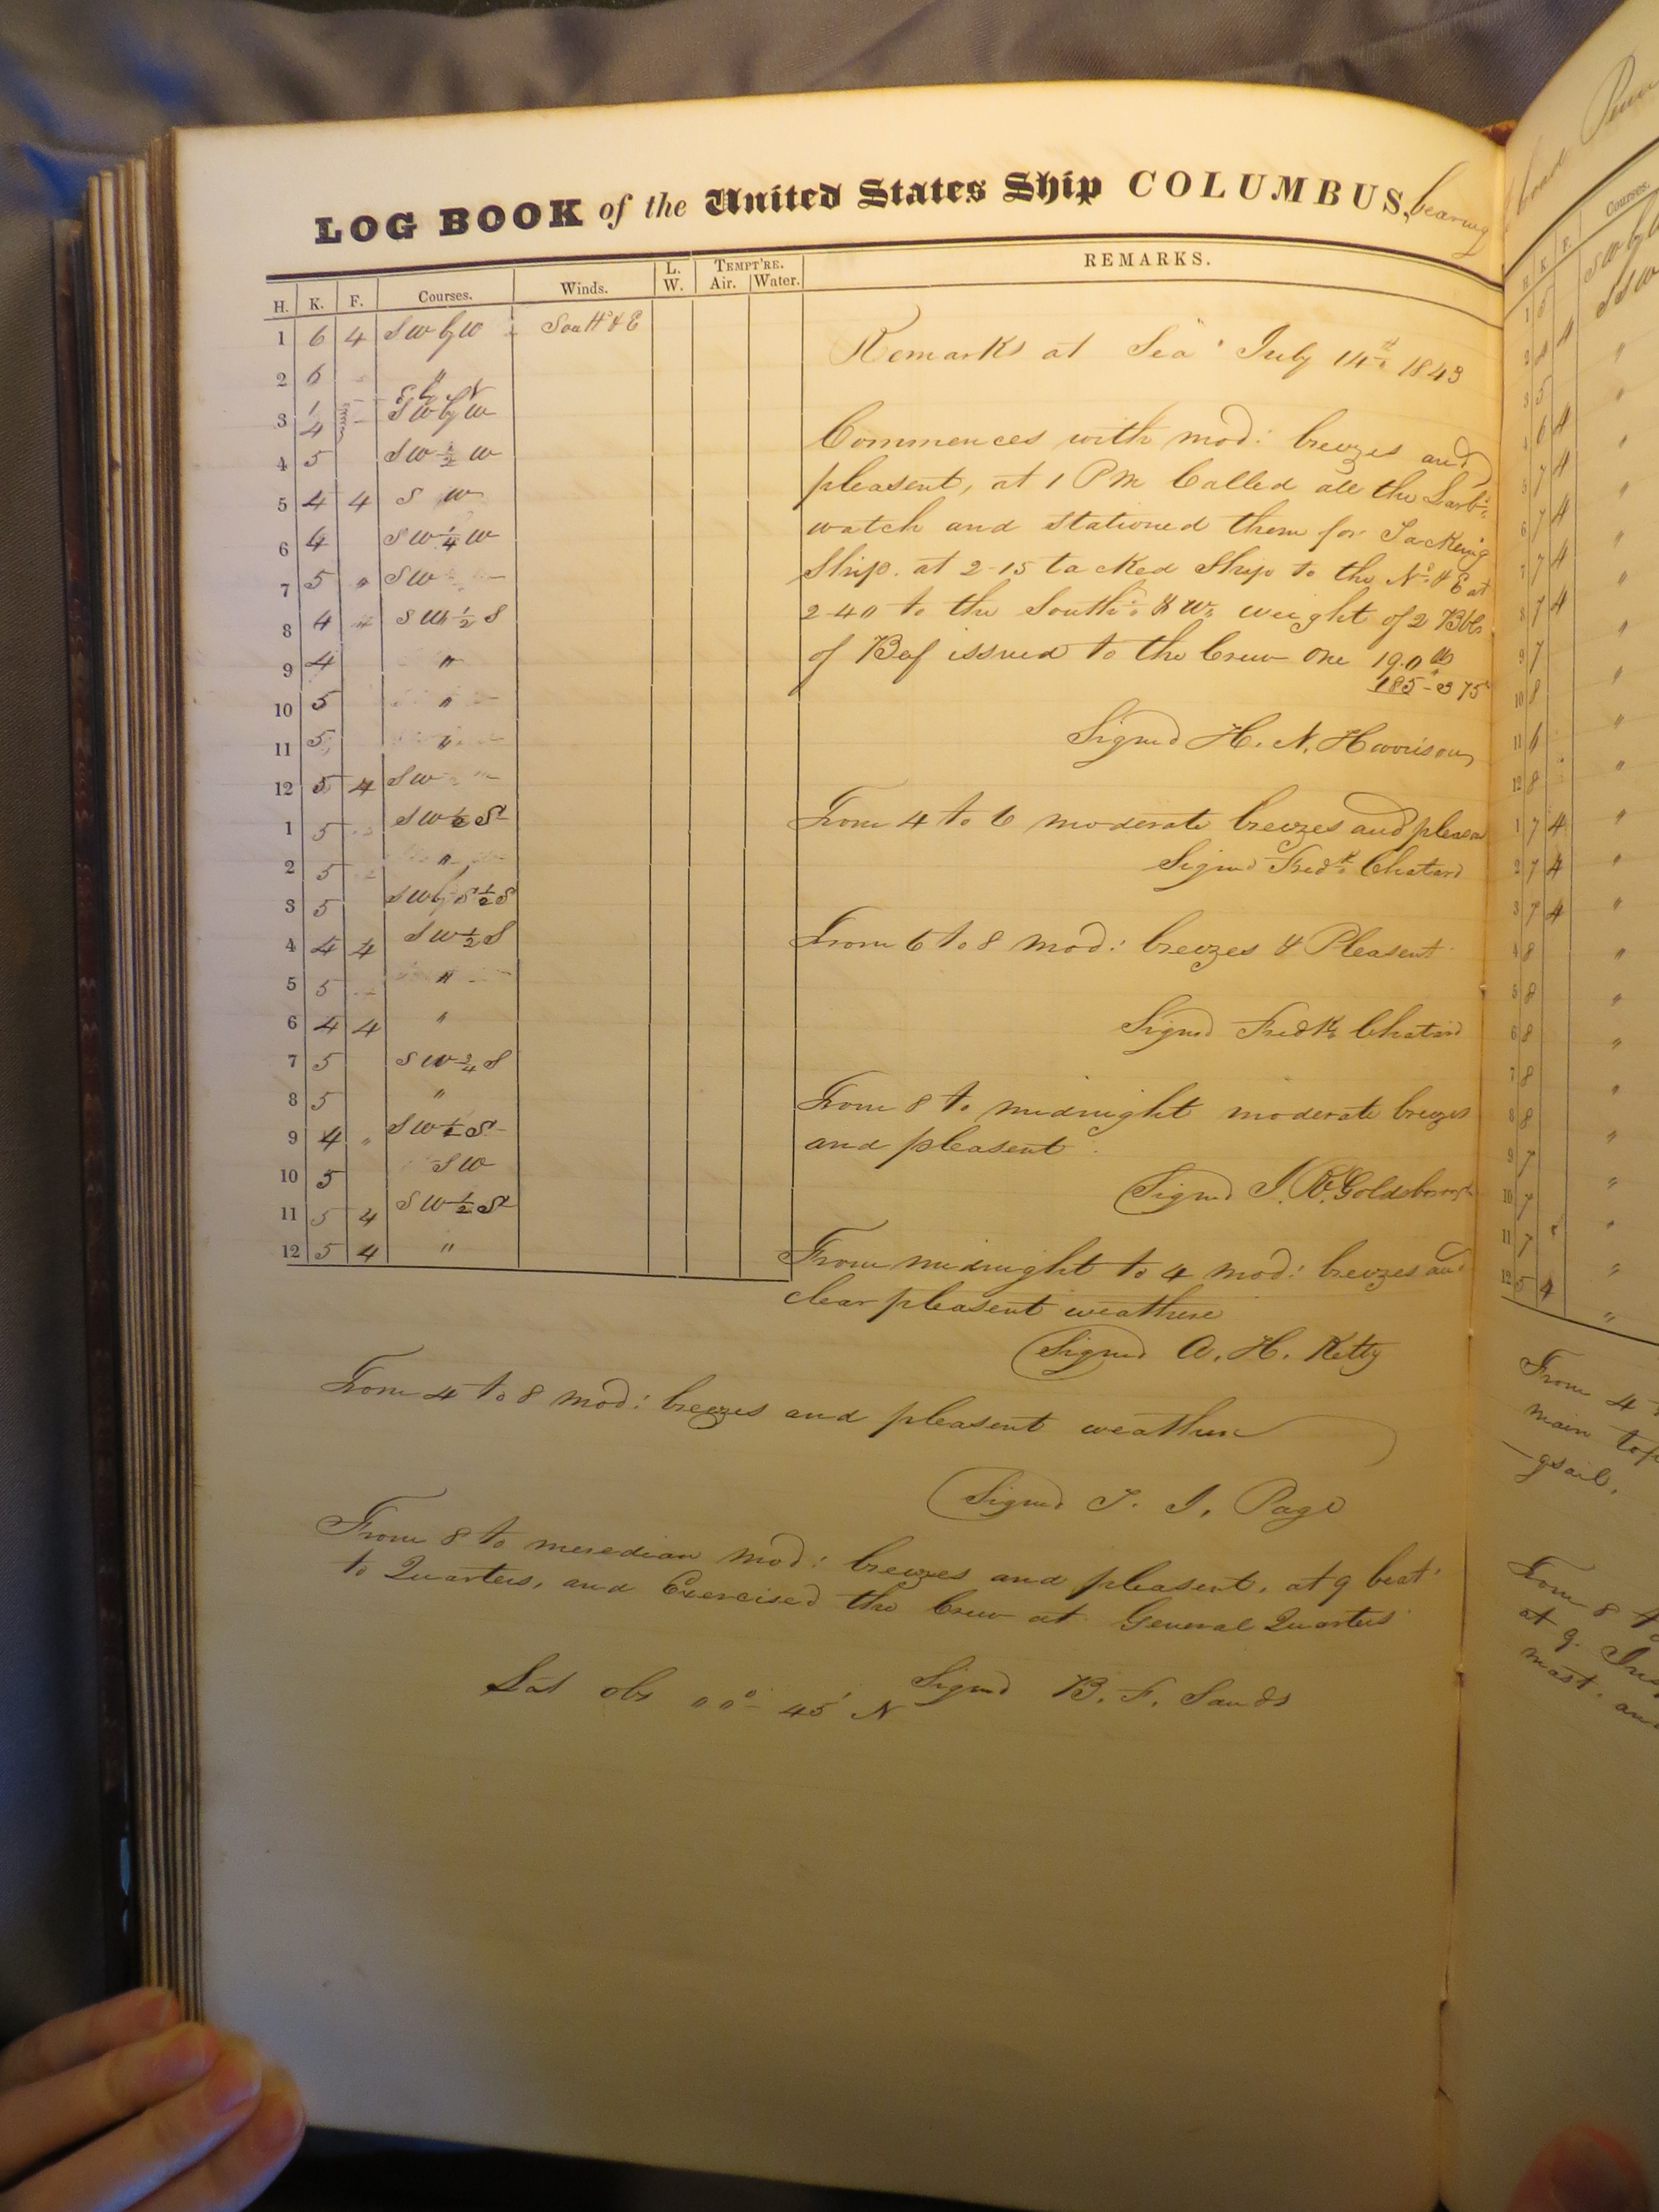 LOG BOOK of the United States Ship COLUMBUS, bearing
H. K. F. Courses. Winds. L. W. TEMPT'RE. Air. Water. REMARKS.
1 6 4 S W by W South & E
2 6 "
E by N
3 1 4 S W by W
4 5 S W 1/2 W
5 4 4 S W
6 4 S W 1/4 W
7 5 " S W
8 4 " S W 1/2 S
9 4 "
10 5 "
11 5 "
12 5 4 S W
1 5 S W 1/2 S
2 5 "
3 5 S W by S 1/2 S
4 4 4 S W 1/2 S
5 5 "
6 4 4 "
7 5 S W 3/4 S
8 5 "
9 4 " S W 1/2 S
10 5 S W
11 5 4 S W 1/2 S
12 5 4 "
Remarks at Sea July 14th 1843
Commences with mod: breezes and
pleasent, at 1 PM Called all the Larb:
watch and stationed them for Tacking
Ship. at 2-15 tacked Ship to the Nd & E at
2-40 to the South: & W: weight of 2 Bbls
of Beef issued to the Crew one 190 lb
185-375
Signed H. N. Harrison
From 4 to 6 moderate breezes and pleasa
Signed Fredk Chatard
From 6 to 8 mod: breezes & Pleasent
Signed Fredk Chatard
From 8 to midnight moderate breezes
and pleasent
Signed J. R. Goldsborough
From midnight to 4 mod: breezes and
clear pleasent weather
Signed A. H. Kelty
From 4 to 8 mod: breezes and pleasent weather
Signed T. J. Page
From 8 to meredian mod: breezes and pleasent. at 9 beat
to Quarters, and Exercised the Crew at General Quarters
Lat obs 00° 45' N Signed B. F. Sands
Courses.
From 4
main top
-gsail.
From 8
at 9.
mast. an